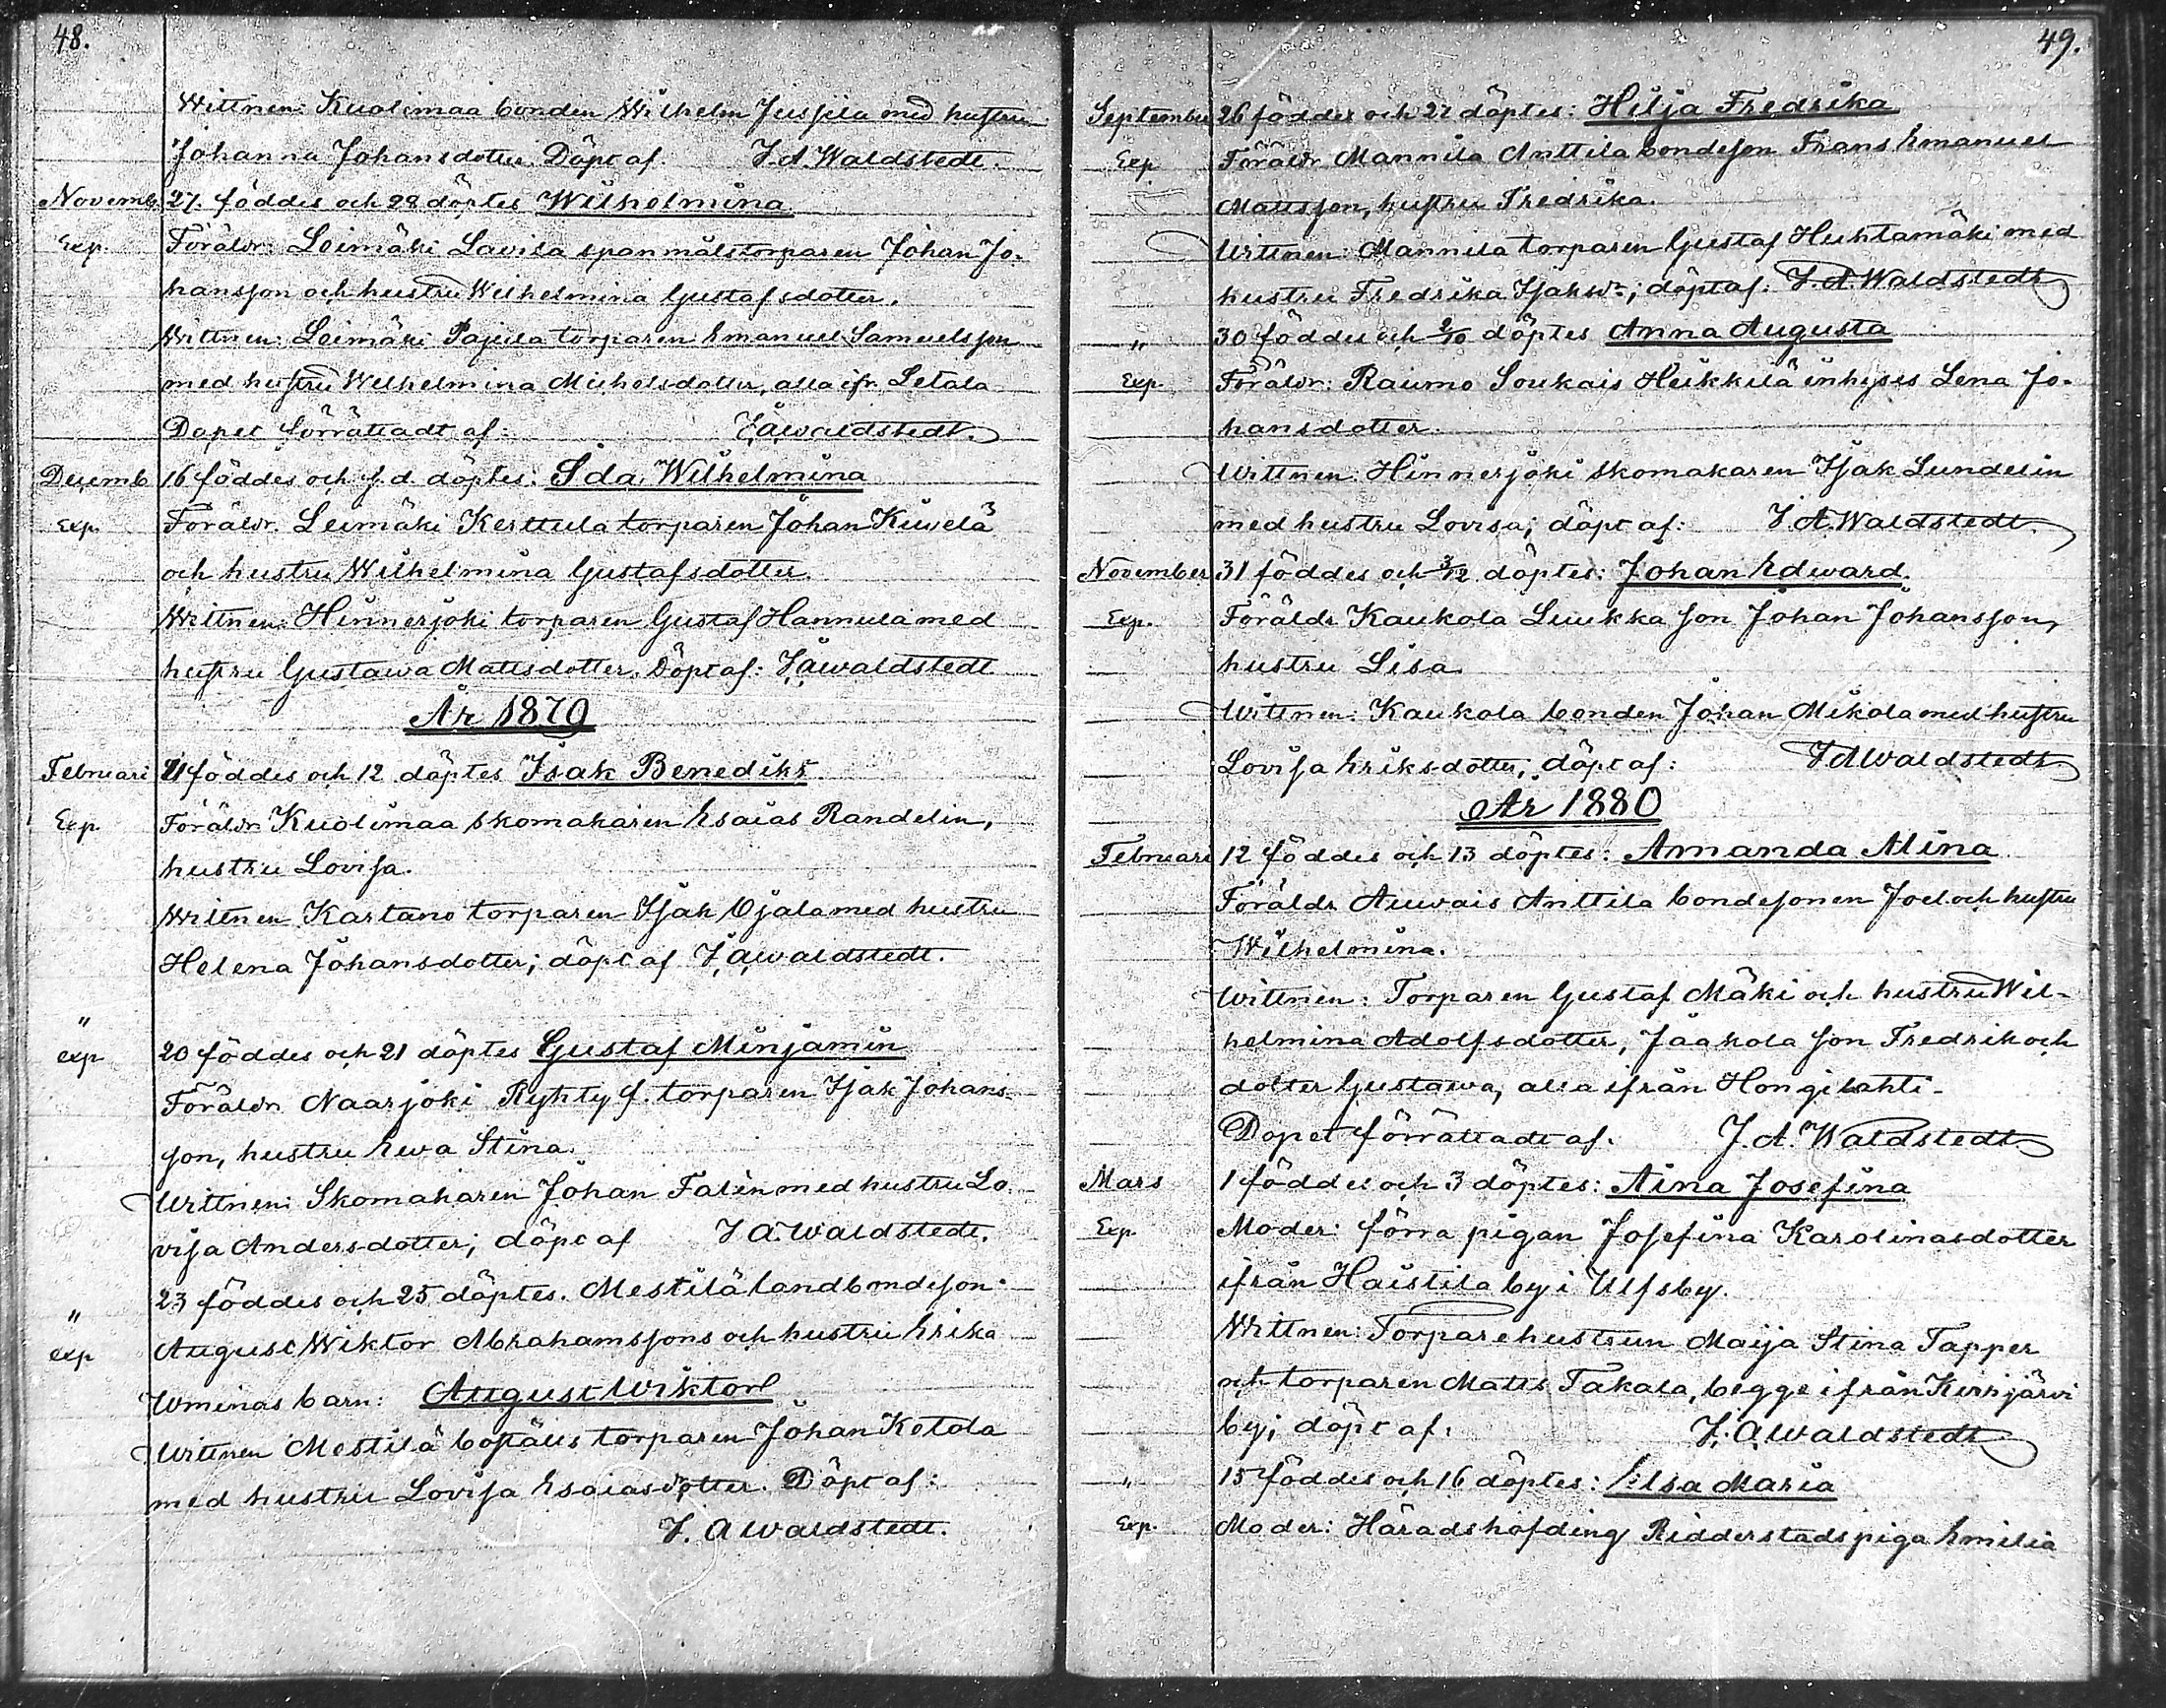 48.
Wittnen: Kuolimaa bonden Wilhelm Jussila med hustru
Johanna Johansdotter. Döpt af. J. A. Waldstedt.
Novemb. 27. föddes och 28 döptes Wilhelmina
Exp. Föräldr: Leimäki Lavila spanmålstorparen Johan Jo-
hansson och hustru Wilhelmina Gustafsdotter.
Wittnen: Leimäki Pajula torparen Emanuel Samuelsson
med hustru Wilhelmina Michelsdotter, alla ifr. Letala
Dopet förrättadt af: J A Waldstedt.
Decemb 16 föddes och s. d. döptes: Ida Wilhelmina
Exp. Föräldr. Leimäki Kerttula torparen Johan Kiwelä
och hustru Wilhelmina Gustafsdotter.
Wittnen: Hinnerjoki torparen Gustaf Hannula med
hustru Gustawa Matsdotter. Döpt af: J A Waldstedt
År 1879
Februari 11 föddes och 12 döptes Isak Benedikt
Exp. Föräldr. Kuolimaa skomakaren Esaias Randelin,
hustru Lovisa.
Wittnen Kartano torparen Isak Ojala med hustru
Helena Johansdotter; döpt af J A Waldstedt.
"
exp 20 föddes och 21 döptes Gustaf Minjamin
Föräldr. Naarjoki Ryhty f. torparen Isak Johans-
son, hustru Ewa Stina.
Wittnen: Skomakaren Johan Falin med hustru Lo-
visa Andersdotter; döpt af J A Waldstedt.
" 23 föddes och 25 döptes. Mestilä landbondeson
exp August Wiktor Abrahamssons och hustru Erika
Wminas barn: August Wiktor
Wittnen Mestilä boställs torparen Johan Ketola
med hustru Lovisa Esaiasdotter. Döpt af:
J. A Waldstedt.
49.
September 26 föddes och 27 döptes: Hilja Fredrika
Exp Föräldr Mannila Anttila bondeson Frans Emanuel
Mattsson, hustru Fredrika.
Wittnen: Mannila torparen Gustaf Huhtamäki med
hustru Fredrika Isaksdr; döpt af: J. A. Waldstedt
" 30 föddes och 2/10 döptes Anna Augusta
Exp. Föräldr: Raumo Soukais Heikkilä inhyses Lena Jo-
hansdotter.
Wittnen: Hinnerjoki skomakaren Isak Lundelin
med hustru Lovisa; döpt af: J. A. Waldstedt.
November 31 föddes och 3/12 döptes: Johan Edward.
Exp. Föräldr Kaukola Luukka son Johan Johansson,
hustru Lisa
Wittnen: Kaukola bonden Johan Mikola med hustru
Lovisa Eriksdotter; döpt af: J A Waldstedt
År 1880
Februari 12 föddes och 13 döptes: Amanda Alina
Föräldr Auvais Anttila bondesonen Joel och hustru
Wilhelmina.
Wittnen: Torparen Gustaf Mäki och hustru Wil-
helmina Adolfsdotter, Jaakola son Fredrik och
dotter Gustawa, alla ifrån Hongilahti.
Dopet förrättadt af. J. A. Waldstedt
Mars 1 föddes och 3 döptes: Aina Josefina
Exp. Moder: förra pigan Josefina Karolinasdotter
ifrån Haistila by i Ulfsby.
Wittnen: Torparehustrun Maija Stina Tapper
och torparen Matts Takala, begge ifrån Kirrijärvi
by; döpt af. J. A Waldstedt
" 15 föddes och 16 döptes: Elsa Maria
Exp. Moder: Häradshöfding Ridderstads piga Emilia